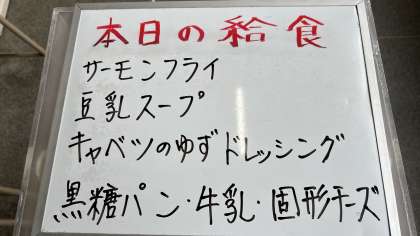 本日の給食
サーモンフライ
豆乳スープ
キャベツのゆずドレッシング
黒糖パン・牛乳・固形チーズ